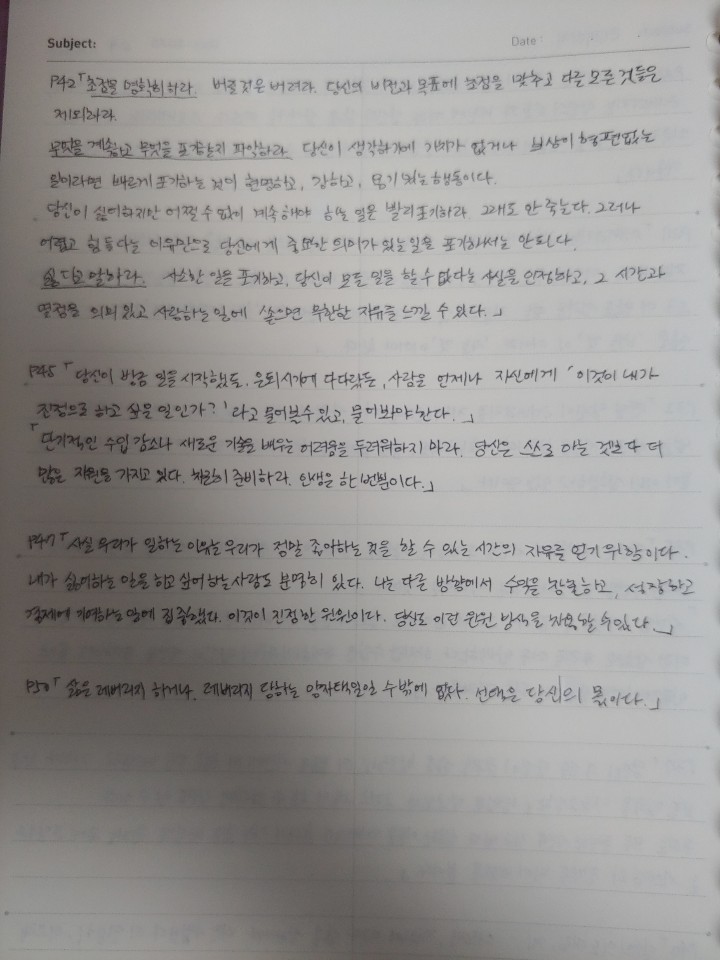 Subject:
Date :
P42「초점을 명확히 하라. 버릴 것은 버려라. 당신의 비전과 목표에 초점을 맞추고 다른 모든 것들은
제외하라.
무엇을 계속하고 무엇을 포기할는지 파악하라. 당신이 생각하기에 가치가 없거나 보상이 형편없는
일이라면 빠르게 포기하는 것이 현명하고, 강하고, 용기 있는 행동이다.
당신이 싫어하지만 어쩔 수 없이 계속해야 하는 일은 빨리 포기하라. 그래도 안 죽는다. 그러나
어렵고 힘들다는 이유만으로 당신에게 중요한 의미가 있는 일을 포기해서는 안된다.
싫다고 말하라. 사소한 일을 포기하고, 당신이 모든 일을 할 수 없다는 사실을 인정하고, 그 시간과
열정을 의미 있고 사랑하는 일에 쏟으면 무한한 자유를 느낄 수 있다.」
P45「당신이 방금 일을 시작했든, 은퇴시기에 다다랐든, 사람은 언제나 자신에게 '이것이 내가
진정으로 하고 싶은 일인가?' 라고 물어볼 수 있고, 물어봐야 한다.」
「단기적인 수입 감소나 새로운 기술을 배우는 어려움을 두려워하지 마라. 당신은 스스로 아는 것보다 더
많은 자원을 가지고 있다. 철저히 준비하라. 인생은 한 번뿐이다.」
P47「사실 우리가 일하는 이유는 우리가 정말 좋아하는 것을 할 수 있는 시간의 자유를 얻기 위함이다.
내가 싫어하는 일을 하고 싶어 하는 사람도 분명히 있다. 나는 다른 방향에서 수익을 창출하고, 성장하고
경제에 기여하는 일에 집중했다. 이것이 진정한 윈윈이다. 당신도 이런 윈윈 방식을 사용할 수 있다.」
P50「삶은 레버리지 하거나, 레버리지 당하는 양자택일일 수밖에 없다. 선택은 당신의 몫이다.」